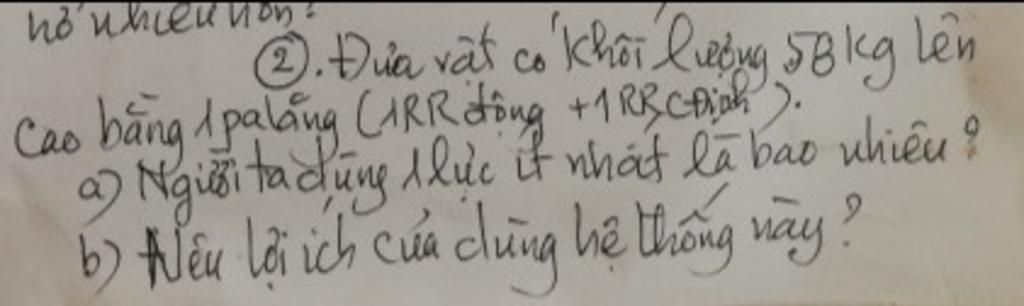 nở nhiều hơn?
②. Đưa vật có khối lượng 58kg lên
cao bằng 1 palăng (1RR động + 1RRCĐịnh).
a) Người ta dùng 1 lực ít nhất là bao nhiêu?
b) Nêu lợi ích của dùng hệ thống này?